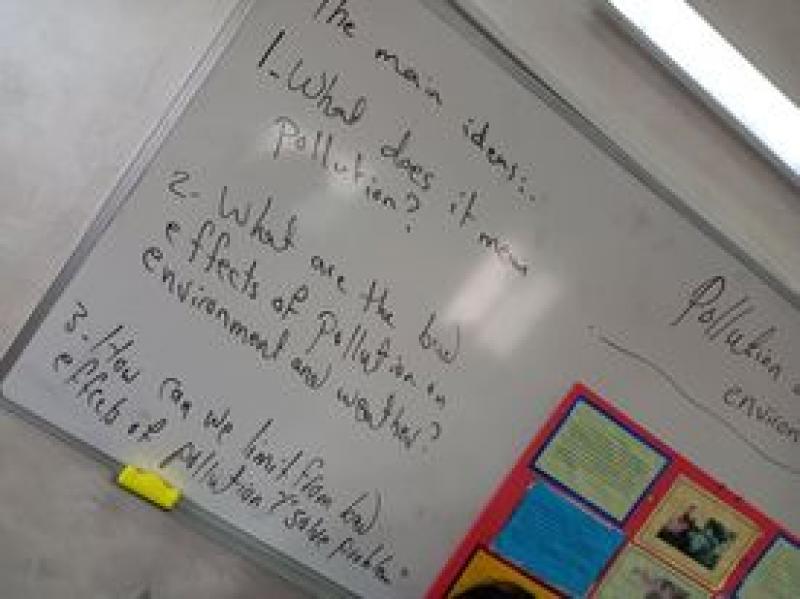 The main ideas:.
1. What does it mean
pollution?
2- What are the bad
effects of pollution on
environment and weather?
3- How can we limit from bad
effects of pollution & solve problem.
Pollution
environ